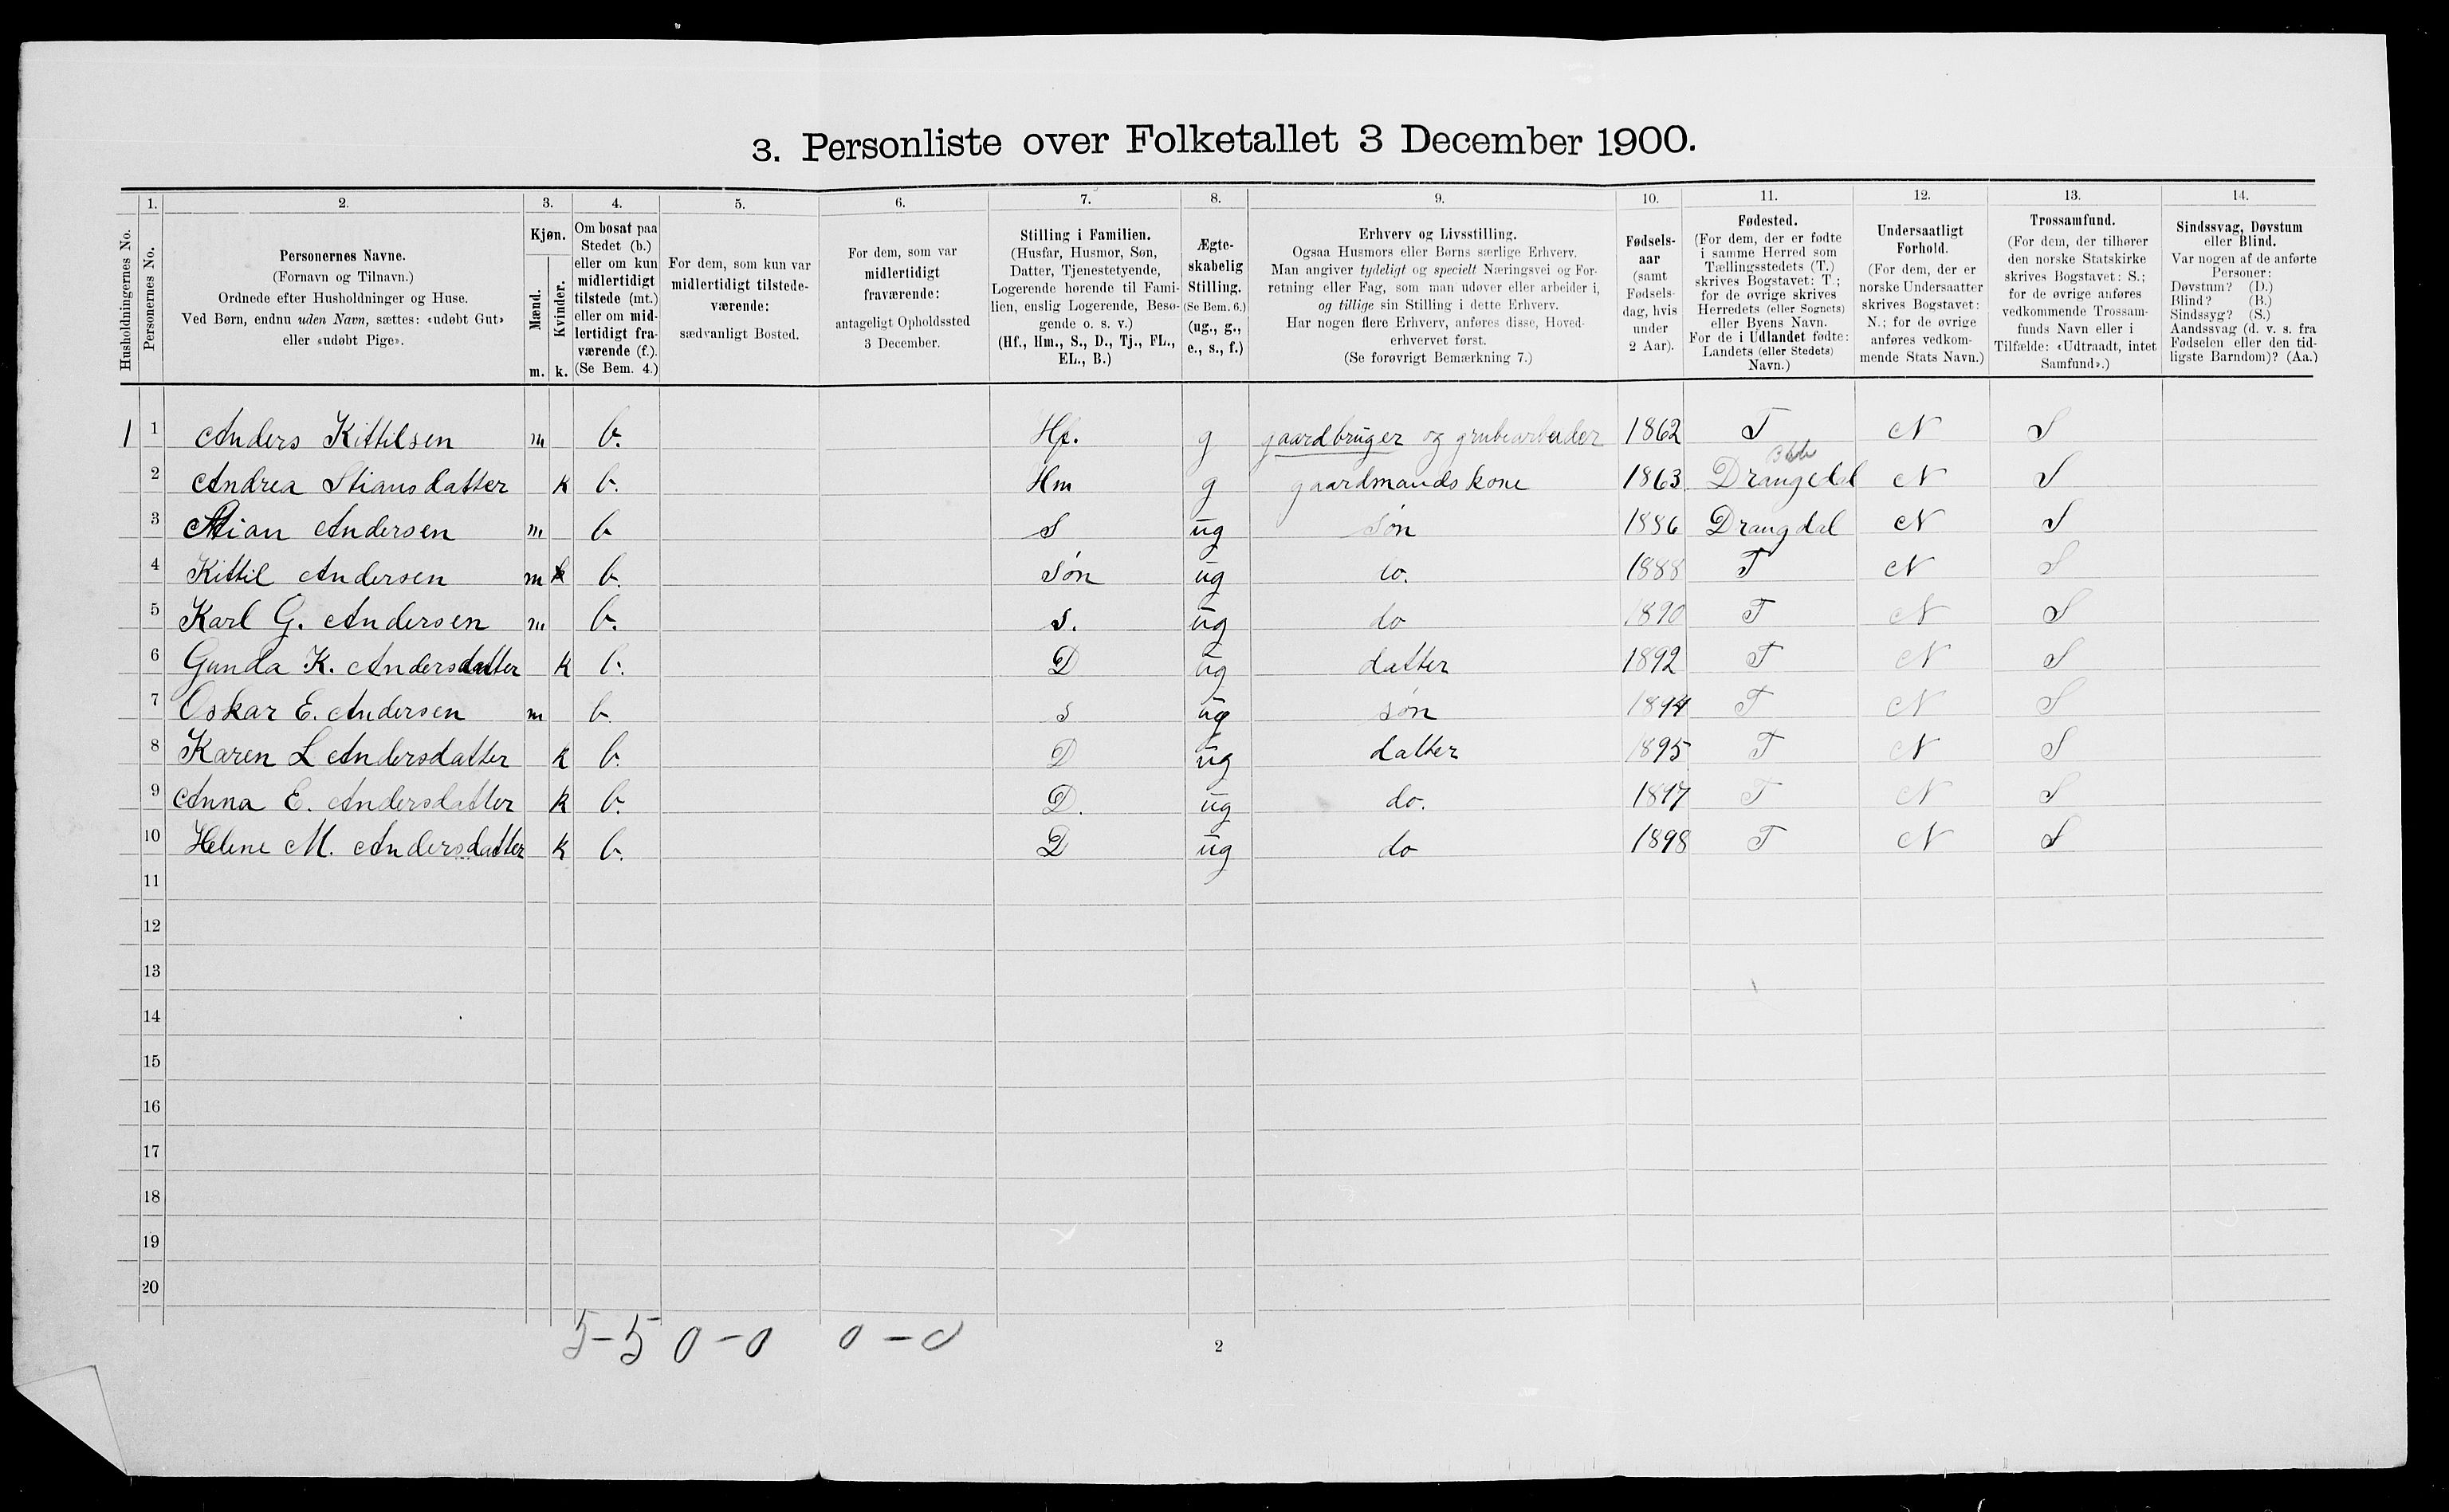 3. Personliste over Folketallet 3 December 1900.
Husholdningernes No.
1.
Personernes No.
2.
Personernes Navne.
(Fornavn og Tilnavn.)
Ordnede efter Husholdninger og Huse.
Ved Børn, endnu uden Navn, sættes: «udøbt Gut»
eller «udøbt Pige».
3.
Kjøn.
Mænd.
Kvinder.
m. k.
4.
Om bosat paa
Stedet (b.)
eller om kun
midlertidigt
tilstede (mt.)
eller om mid-
lertidigt fra-
værende (f.).
(Se Bem. 4.)
5.
For dem, som kun var
midlertidigt tilstede-
værende:
sædvanligt Bosted.
6.
For dem, som var
midlertidigt
fraværende:
antageligt Opholdssted
3 December.
7.
Stilling i Familien.
(Husfar, Husmor, Søn,
Datter, Tjenestetyende,
Logerende hørende til Fami-
lien, enslig Logerende, Besø-
gende o. s. v.)
(Hf., Hm., S., D., Tj., FL.,
EL., B.)
8.
Ægte-
skabelig
Stilling.
(Se Bem. 6.)
(ug., g.,
e., s., f.)
9.
Erhverv og Livsstilling.
Ogsaa Husmors eller Børns særlige Erhverv.
Man angiver tydeligt og specielt Næringsvei og For-
retning eller Fag, som man udøver eller arbeider i,
og tillige sin Stilling i dette Erhverv.
Har nogen flere Erhverv, anføres disse, Hoved-
erhvervet først.
(Se forøvrigt Bemærkning 7.)
10.
Fødsels-
aar
(samt
Fødsels-
dag, hvis
under
2 Aar).
11.
Fødested.
(For dem, der er fødte
i samme Herred som
Tællingsstedets (T.)
skrives Bogstavet: T.;
for de øvrige skrives
Herredets (eller Sognets)
eller Byens Navn.
For de i Udlandet fødte:
Landets (eller Stedets)
Navn.)
12.
Undersaatligt
Forhold.
(For dem, der er
norske Undersaatter
skrives Bogstavet:
N.; for de øvrige
anføres vedkom-
mende Stats Navn.)
13.
Trossamfund.
(For dem, der tilhører
den norske Statskirke
skrives Bogstavet: S.;
for de øvrige anføres
vedkommende Trossam-
funds Navn eller i
Tilfælde: «Udtraadt, intet
Samfund».)
14.
Sindssvag, Døvstum
eller Blind.
Var nogen af de anførte
Personer:
Døvstum? (D.)
Blind? (B.)
Sindssyg? (S.)
Aandssvag (d. v. s. fra
Fødselen eller den tid-
ligste Barndom)? (Aa.)
1 1 Anders Kittilsen m b. Hf. g gaardbruger og grubearbeider 1862 T N S
2 Andrea Stiansdatter k b. Hm g gaardmandskone 1863 Drangedal N S
3 Stian Andersen m. b S ug Søn 1886 Drangdal N S
4 Kittil Andersen m k b. Søn ug do. 1888 T N S
5 Karl G. Andersen m b. S. ug do 1890 T N S
6 Gunda K. Andersdatter k b. D ug datter 1892 T N S
7 Oskar E. Andersen m b. S ug søn 1894 T N S
8 Karen L Andersdatter k b. D ug datter 1895 T N S
9 Anna E. Andersdatter k b. D. ug do. 1897 T N S
10 Helene M. Andersdatter k b. D ug do 1898 T N S
11
12
13
14
15
16
17
18
19
20
5-5 0-0 0-0
2